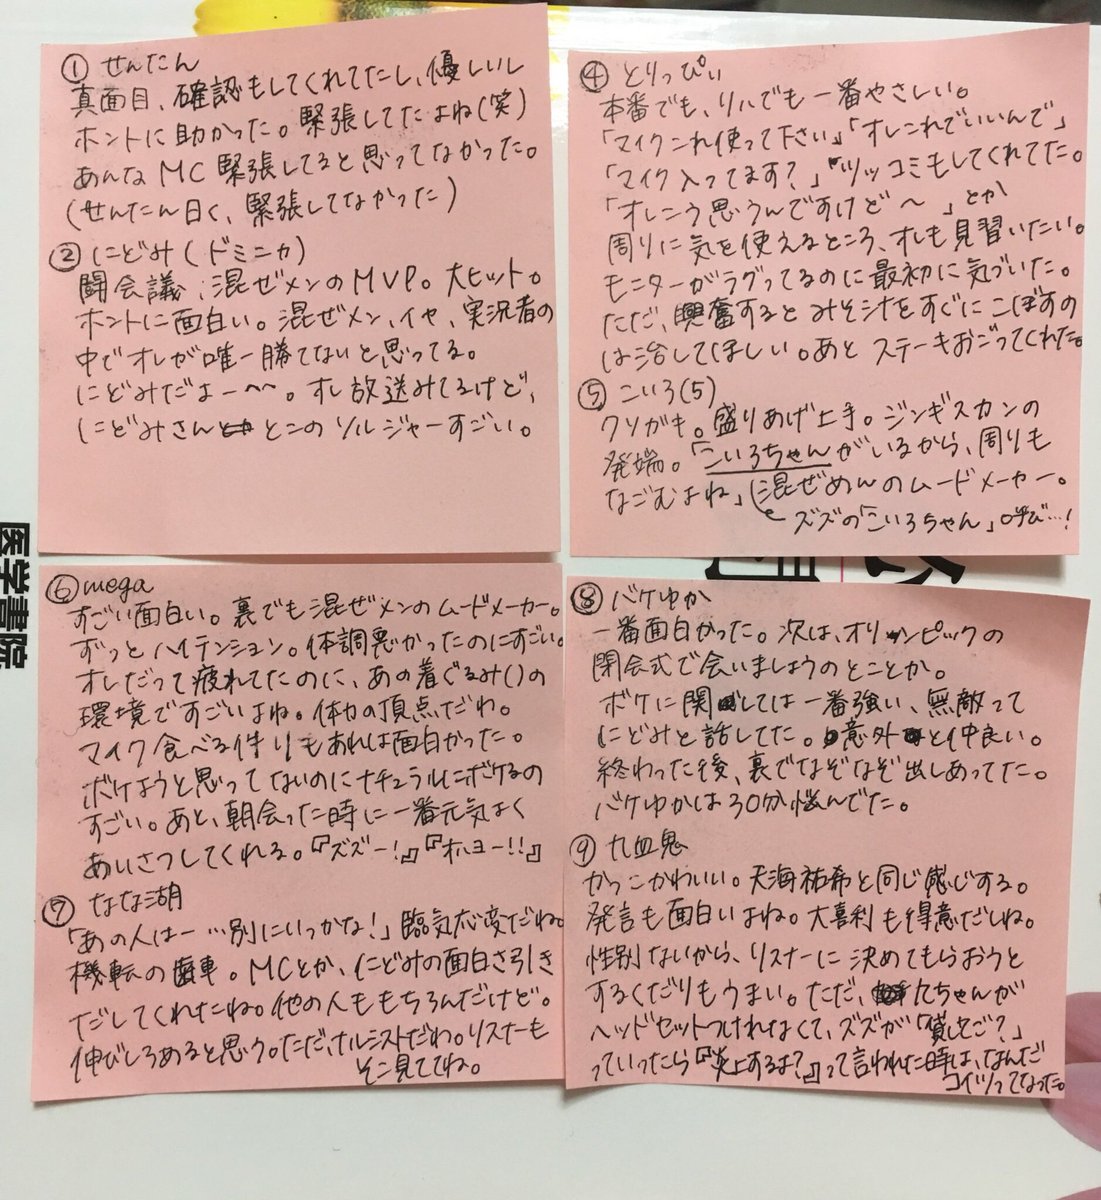 ① せんたん
真面目、確認もしてくれてたし、優しいし
ホントに助かった。緊張してたよね(笑)
あんなMC緊張してると思ってなかった。
(せんたん曰く、緊張してなかった)
② にどみ(ドミニカ)
闘会議、混ぜメンのMVP。大ヒット。
ホントに面白い。混ぜメン、イヤ、実況者の
中でオレが唯一勝てないと思ってる。
にどみだよー〜〜。オレ放送みてるけど、
にどみさんとこのソルジャーすごい。
④ とりっぴぃ
本番でも、リハでも一番やさしい。
「マイクこれ使って下さい」「オレこれでいいんで」
「マイク入ってます?」ツッコミもしてくれてた。
「オレこう思うんですけど〜」とか
周りに気を使えるところ、オレも見習いたい。
モニターがラグってるのに最初に気づいた。
ただ、興奮するとみそ汁をすぐにこぼすの
は治してほしい。あとステーキおごってくれた。
⑤ こいろ(5)
クソガキ。盛りあげ上手。ジンギスカンの
発端。「こいろちゃんがいるから、周りも
なごむよね」(混ぜめんのムードメーカー。
ズズの「こいろちゃん」呼び…!
⑥ mega
すごい面白い。裏でも混ぜメンのムードメーカー。
ずっとハイテンション。体調悪かったのにすごい。
オレだって疲れてたのに、あの着ぐるみ()の
環境ですごいよね。体力の頂点だわ。
マイク食べる件りもあれは面白かった。
ボケようと思ってないのにナチュラルにボケるの
すごい。あと、朝会った時に一番元気よく
あいさつしてくれる。『ズズー!』『オハヨー!!』
⑦ なな湖
「あの人は一…別にいっかな!」臨気応変だね。
機転の歯車。MCとか、にどみの面白さ引き
だしてくれたね。他の人ももちろんだけど。
伸びしろあると思う。ただ、ナルシストだわ。リスナーも
そこ見ててね。
⑧ バケゆか
一番面白かった。次は、オリンピックの
閉会式で会いましょうのとことか。
ボケに関しては一番強い、無敵って
にどみと話してた。意外と仲良い。
終わった後、裏でなぞなぞ出しあってた。
バケゆかは30分悩んでた。
⑨ 九血鬼
かっこかわいい。天海祐希と同じ感じする。
発言も面白いよね。大喜利も得意だしね。
性別ないから、リスナーに決めてもらおうと
するくだりもうまい。ただ、九ちゃんが
ヘッドセットつけれなくて、ズズが「貸してご?」
っていったら『炎上するよ?』って言われた時は、なんだ
コイツってなった。
医学書院